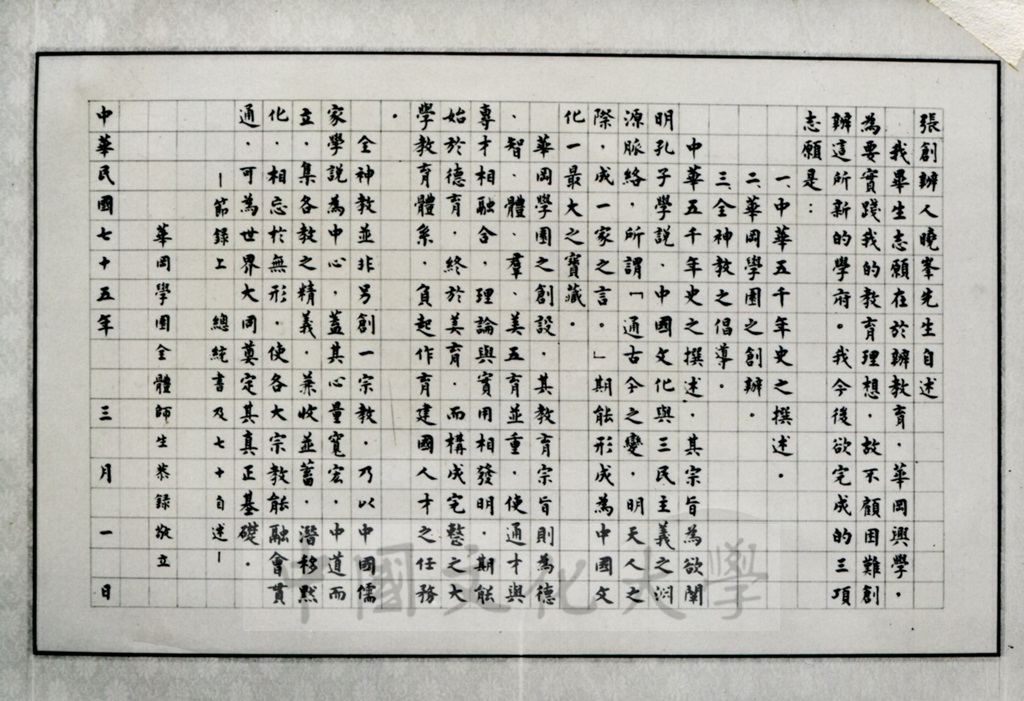 張創辦人曉峯先生自述
我畢生志願在於辦教育．華岡興學，
為要實踐我的教育理想，故不顧困難創
辦這所新的學府。我今後欲完成的三項
志願是：
一、中華五千年史之撰述．
二、華岡學園之創辦．
三、全神教之倡導．
中華五千年史之撰述．其宗旨為欲闡
明孔子學說．中國文化與三民主義之淵
源脈絡，所謂「通古今之變，明天人之
際，成一家之言。」期能形成為中國文
化一最大之寶藏．
華岡學園之創設．其教育宗旨則為德
、智、體、羣、美五育並重，使通才與
專才相融合，理論與實用相發明．期能
始於德育，終於美育．而構成完整之大
學教育體系．負起作育建國人才之任務
．
全神教並非另創一宗教．乃以中國儒
家學說為中心，蓋其心量寬宏，中道而
立．集各教之精義．兼收並蓄．潛移默
化．相忘於無形．使各大宗教能融會貫
通．可為世界大同奠定其真正基礎．
—節錄上 總統書及七十自述—
華岡學園全體師生恭錄敬立
中華民國七十五年 三 月 一 日
中國文化大學